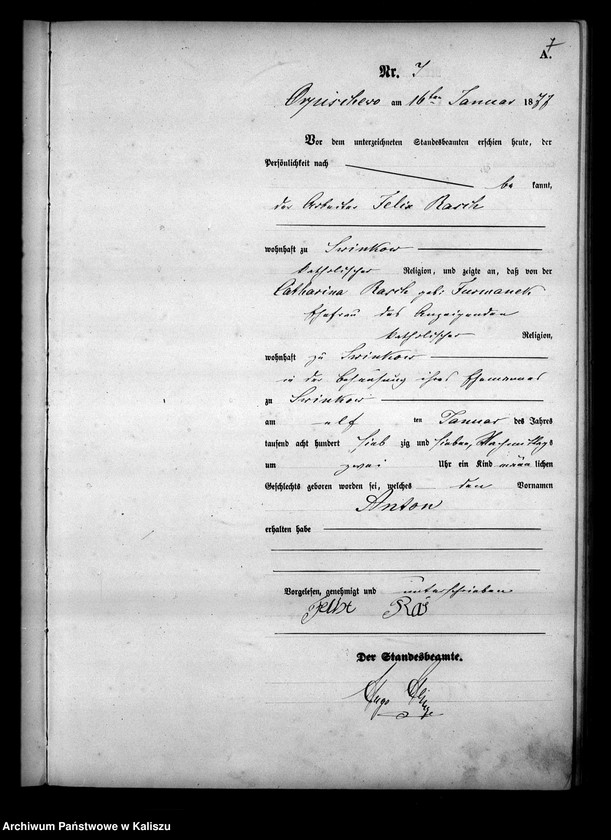 7
A.
Nr. 7
am 16ten Januar 1877
Vor dem unterzeichneten Standesbeamten erschien heute, der
Persönlichkeit nach
be kannt,
der Arbeiter Felix Rasch
wohnhaft zu Swinkow
katholischer Religion, und zeigte an, daß von der
Catharina Rasch geb. Furmanek
Ehefrau des Anzeigenden
katholischer Religion,
wohnhaft zu Swinkow
in der Behausung ihres Ehemannes
zu Swinkow
am elf ten Januar des Jahres
tausend acht hundert sieb zig und sieben, Nachmittags
um zwei Uhr ein Kind männlichen
Geschlechts geboren worden sei, welches den Vornamen
Anton
erhalten habe
Vorgelesen, genehmigt und unterschrieben
Felix Ras
Der Standesbeamte.
Hugo
Archiwum Państwowe w Kaliszu